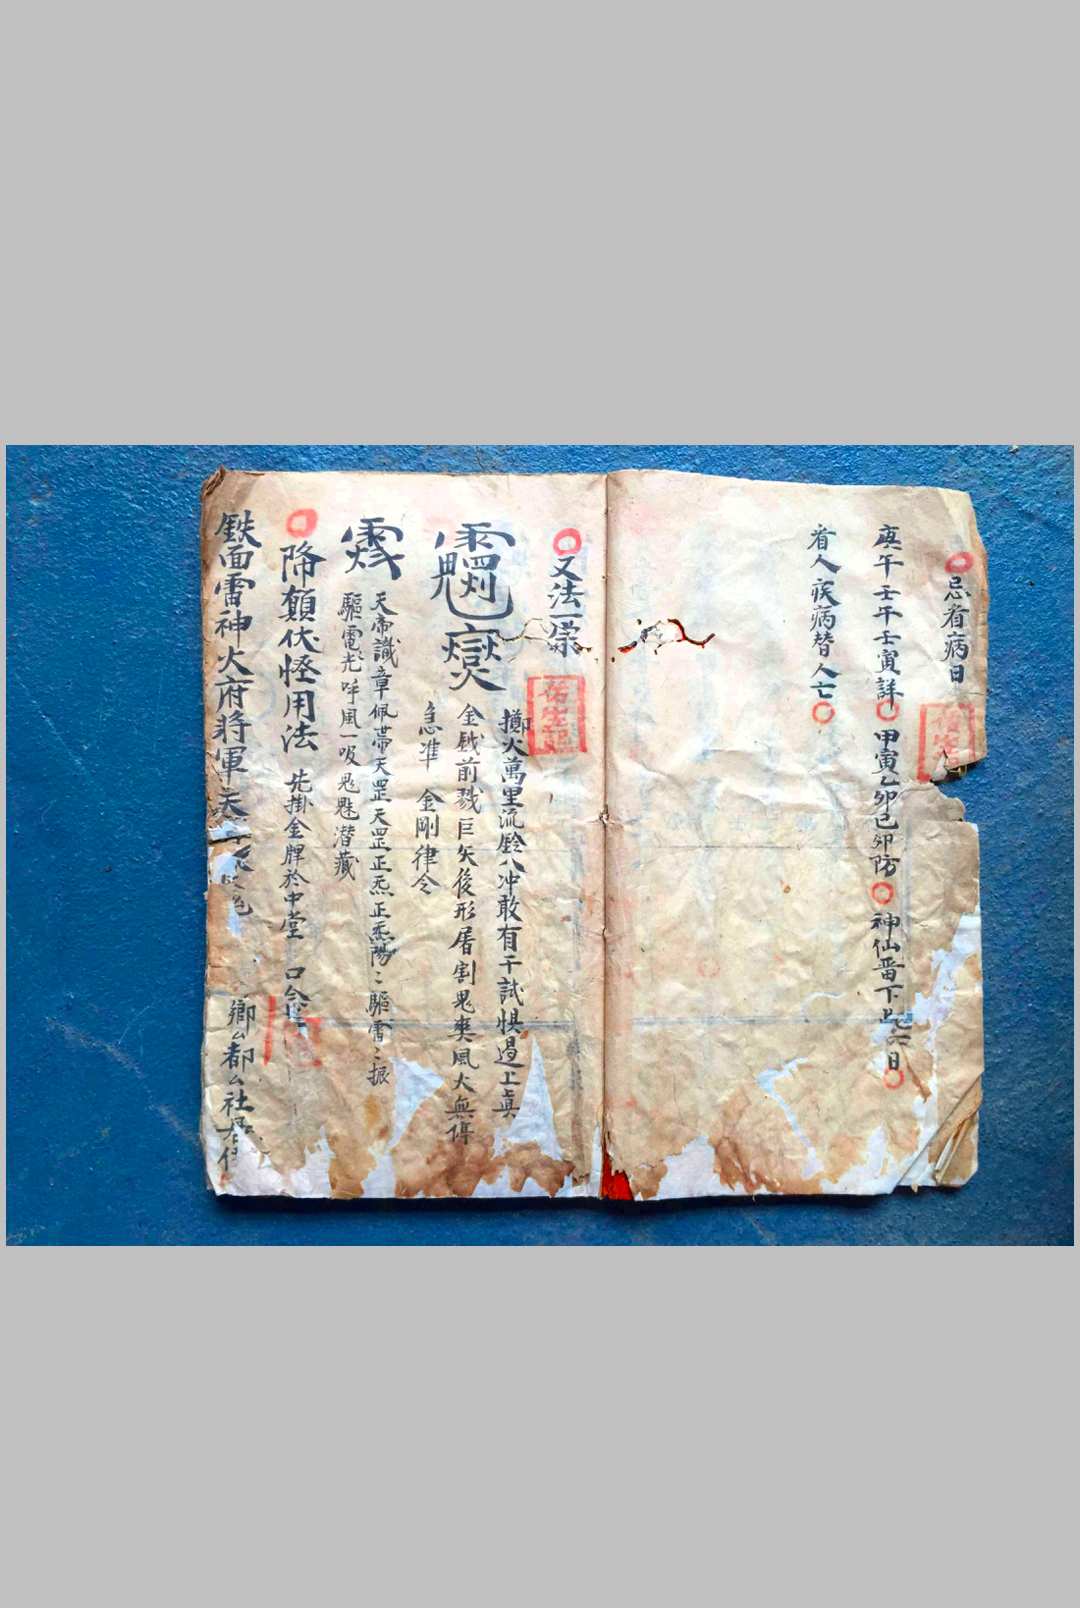 忌看病日
庚午壬午壬寅詳甲寅乙卯己卯防神仙留下此六日
看人疾病替人亡
又法一宗
擲火萬里流鈴八冲敢有干試惧遏上真
金鉞前戮巨矢後形屠割鬼爽風火無停
急准 金剛律令
天帝識章佩帶天罡天罡正炁正炁陽々驅雷々振
驅電光呼風一吸鬼魅潜藏
降顛伏怪用法 先掛金牌於中堂 口念
鉄面雷神火府將軍天
鄉ム都ム社居住